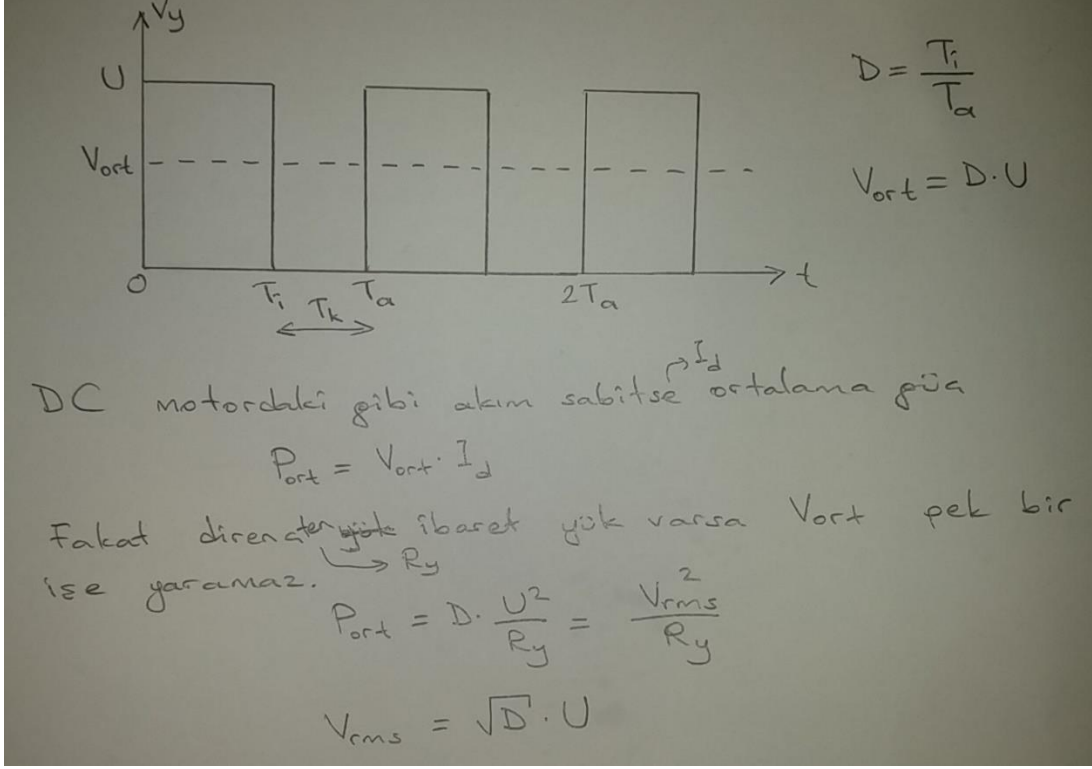 Vy
U
Vort
0 Ti Tk Ta 2Ta t
D = Ti/Ta
Vort = D·U
→ Id
DC motordaki gibi akım sabitse ortalama güç
Port = Vort · Id
Fakat dirençten yük ibaret yük varsa Vort pek bir
→ Ry
işe yaramaz.
Port = D · U²/Ry = Vrms²/Ry
Vrms = √D · U